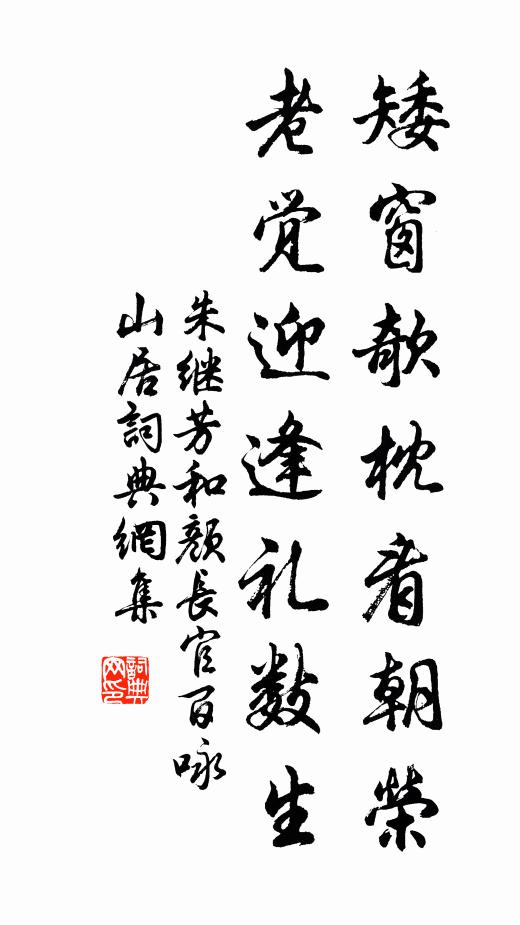 矮窗欹枕看朝榮
老觉迎逢礼数生
朱继芳和颜長官百咏
山居詞典網集
詞典网印